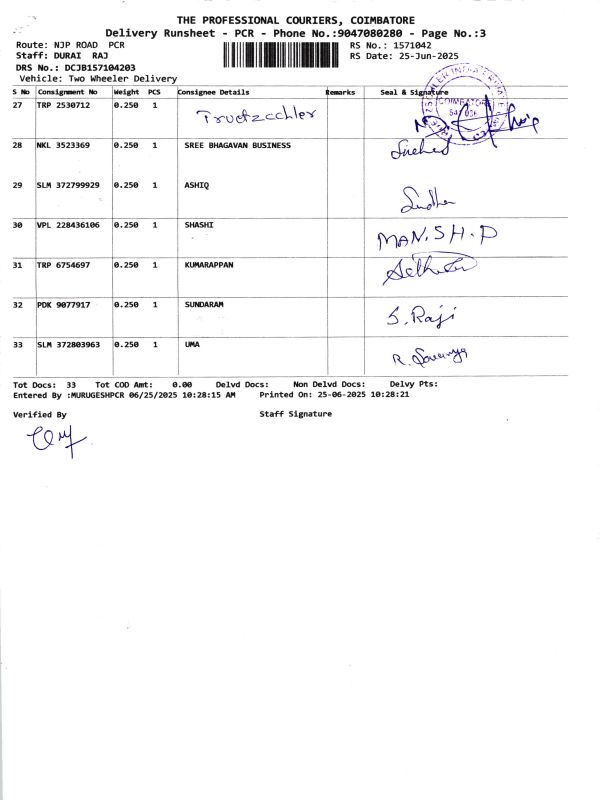 THE PROFESSIONAL COURIERS, COIMBATORE
Delivery Runsheet - PCR - Phone No.:9047080280 - Page No.:3
Route: NJP ROAD PCR RS No.: 1571042
Staff: DURAI RAJ RS Date: 25-Jun-2025
DRS No.: DCJB157104203
Vehicle: Two Wheeler Delivery
S No Consignment No Weight PCS Consignee Details Remarks Seal & Signature
27 TRP 2530712 0.250 1 Truetzschler
COIMBATORE
28 NKL 3523369 0.250 1 SREE BHAGAVAN BUSINESS
29 SLM 372799929 0.250 1 ASHIQ
Sudha
30 VPL 228436106 0.250 1 SHASHI
MANISH.P
31 TRP 6754697 0.250 1 KUMARAPPAN
32 PDK 9077917 0.250 1 SUNDARAM
S. Raji
33 SLM 372803963 0.250 1 UMA
R. Sowmya
Tot Docs: 33 Tot COD Amt: 0.00 Delvd Docs: Non Delvd Docs: Delvy Pts:
Entered By :MURUGESHPCR 06/25/2025 10:28:15 AM Printed On: 25-06-2025 10:28:21
Verified By Staff Signature